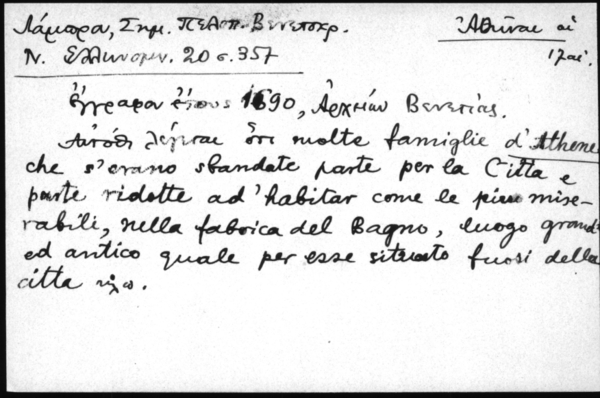 Λάμπρα, Σημ. Πελοπ. Βενετοκρ.
Ἀθῆναι αἱ
Ν. Ἑλληνομν. 20 σ. 357
Ἔγγραφον ἔτους 1690, Ἀρχείων Βενετίας.
Αὐτόθι λέγεται ὅτι molte famiglie d'Athene
che s'erano sbandate parte per la Citta e
parte ridotte ad'habitar come le piu mise-
rabili, nella fabrica del Bagno, luogo grande
ed antico quale per esse situato fuori della
citta κτλ.